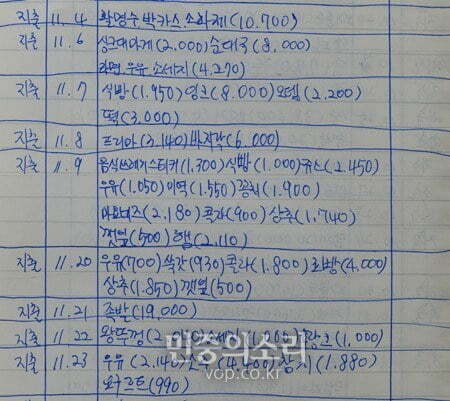 지출 11. 4 활명수 박카스. 소화제 (10.700)
지출 11. 6 싱크대마개 (2.000) 순대국 (8.000)
라면. 우유. 소세지 (4.270)
지출 11. 7 식빵 (1.950) (8.000) 오뎅 (2.200)
떡 (3.000)
지출 11. 8 (3.140) 바지락 (6.000)
지출 11. 9 음식쓰레기스티커 (1.300) 식빵 (1.000) 쥬스 (2.450)
우유 (1.050) 미역 (1.550) 꽁치 (1.900)
마요네즈 (2.180) 콜라 (900) 상추 (1.740)
깻잎 (500) 햄 (2.110)
지출 11. 20 우유 (700) 쑥갓 (930) 콜라 (1.800) (4.000)
상추 (1.850) 깻잎 (500)
지출 11. 21 족발 (19.000)
지출 11. 22 왕뚜껑 (1.000)
지출 11. 23 우유 (2.140) 참치 (1.880)
요구르트 (990)
민중의소리
vop.co.kr